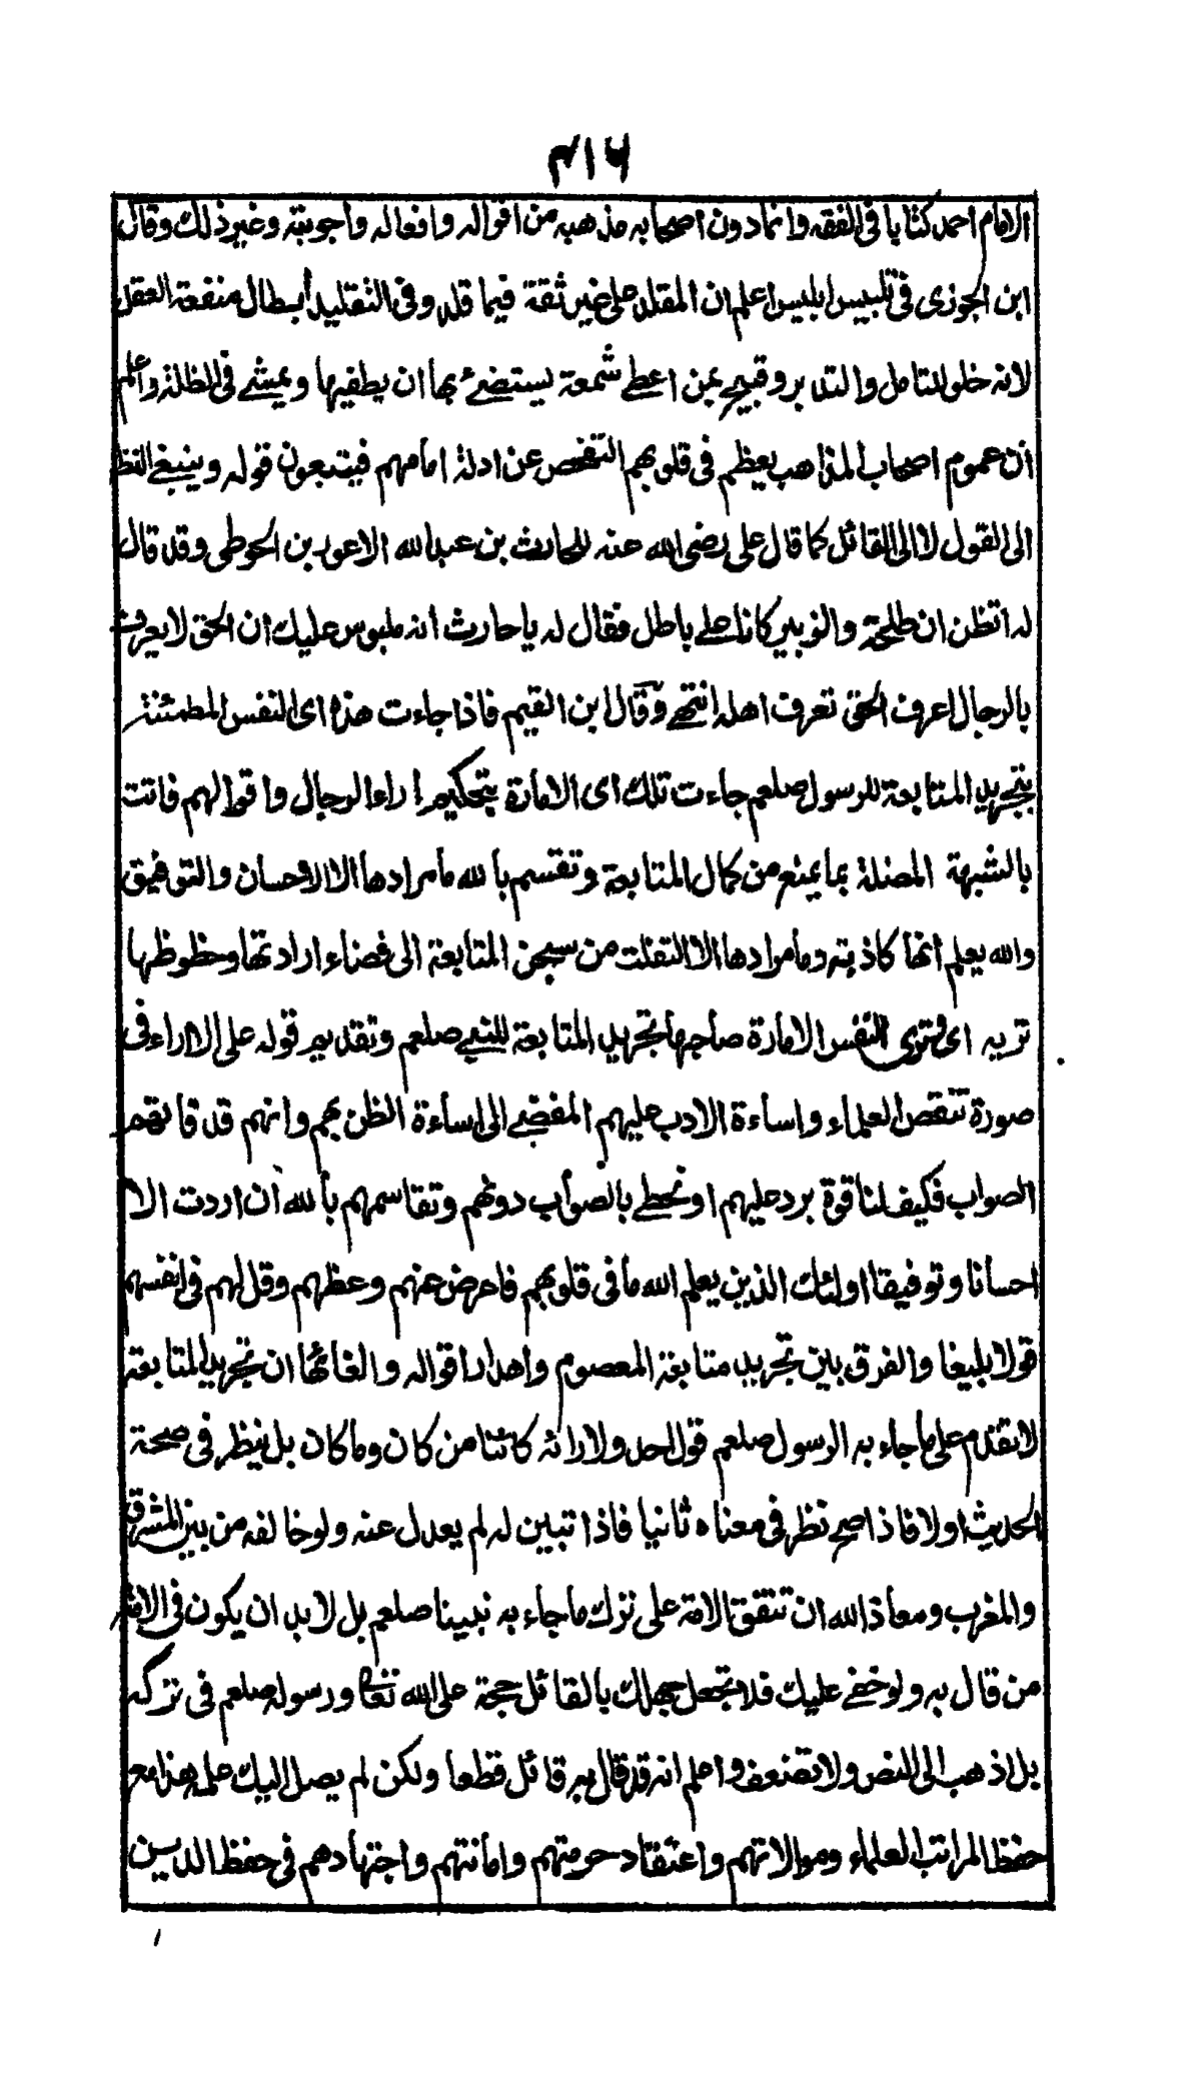 ٣١٦
الامام احمد كتابا في الفقه وانما دون اصحابه مذهبه من اقواله وافعاله واجوبته وغير ذلك وقال
ابن الجوزى في تلبيس ابليس اعلم ان المقلد على غير ثقة فيما قلد وفي التقليد أبطال منفعة العقل
لانه خلق للتامل والتدبر وقبيح بمن اعطى شمعة يستضئ بها ان يطفيها ويمشى في الظلمة واعلم
أن عموم اصحاب المذاهب يعظم في قلوبهم التفحص عن ادلة امامهم فيتبعون قوله وينبغى النظر
الى القول لا الى القائل كما قال على رضى الله عنه للحارث بن عبدالله الاعور بن الحوطى وقد قال
له اتظن ان طلحة والزبير كانا على باطل فقال له يا حارث انه ملبوس عليك ان الحق لا يعرف
بالرجال اعرف الحق تعرف اهله انتهى وقال ابن القيم فاذا جاءت هذه اى النفس المطمئنة
بتجريد المتابعة للرسول صلعم جاءت تلك اى الامارة بتحكيم اراء الرجال واقوالهم فاتت
بالشبهة المضلة بما يمنع من كمال المتابعة وتقسم بالله ما مرادها الا الاحسان والتوفيق
والله يعلم انها كاذبة وما مرادها الا التفلت من سجن المتابعة الى فضاء ارادتها وحظوظها
تريه اى وترى النفس الامارة صاحبها تجريد المتابعة للنبى صلعم وتقديم قوله على الاراء في
صورة تنقص العلماء واساءة الادب عليهم المفضى الى اساءة الظن بهم وانهم قد فاتهم
الصواب فكيف لنا قوة برد عليهم او نحظى بالصواب دونهم وتقاسمهم بالله أن اردت الا
احسانا وتوفيقا اولئك الذين يعلم الله ما في قلوبهم فاعرض عنهم وعظهم وقل لهم في انفسهم
قولا بليغا والفرق بين تجريد متابعة المعصوم واهدار اقواله والغائها ان تجريد المتابعة
لا يقدم على ما جاء به الرسول صلعم قول احد ولا رائه كائنا من كان وما كان بل ينظر في صحة
الحديث اولا فاذا صح نظر في معناه ثانيا فاذا تبين له لم يعدل عنه ولو خالفه من بين المشرق
والمغرب ومعاذ الله ان تتفق الامة على ترك ما جاء به نبينا صلعم بل لا بد ان يكون في الامة
من قال به ولو خفى عليك فلا تجعل جهلك بالقائل حجة على الله تعالى ورسوله صلعم في تركه
بل اذهب الى النص ولا تضعف واعلم انه قد قال به قائل قطعا ولكن لم يصل اليك علمه هذا مع
حفظ المراتب العلماء وموالاتهم واعتقاد حرمتهم وامانتهم واجتهادهم في حفظ الدين